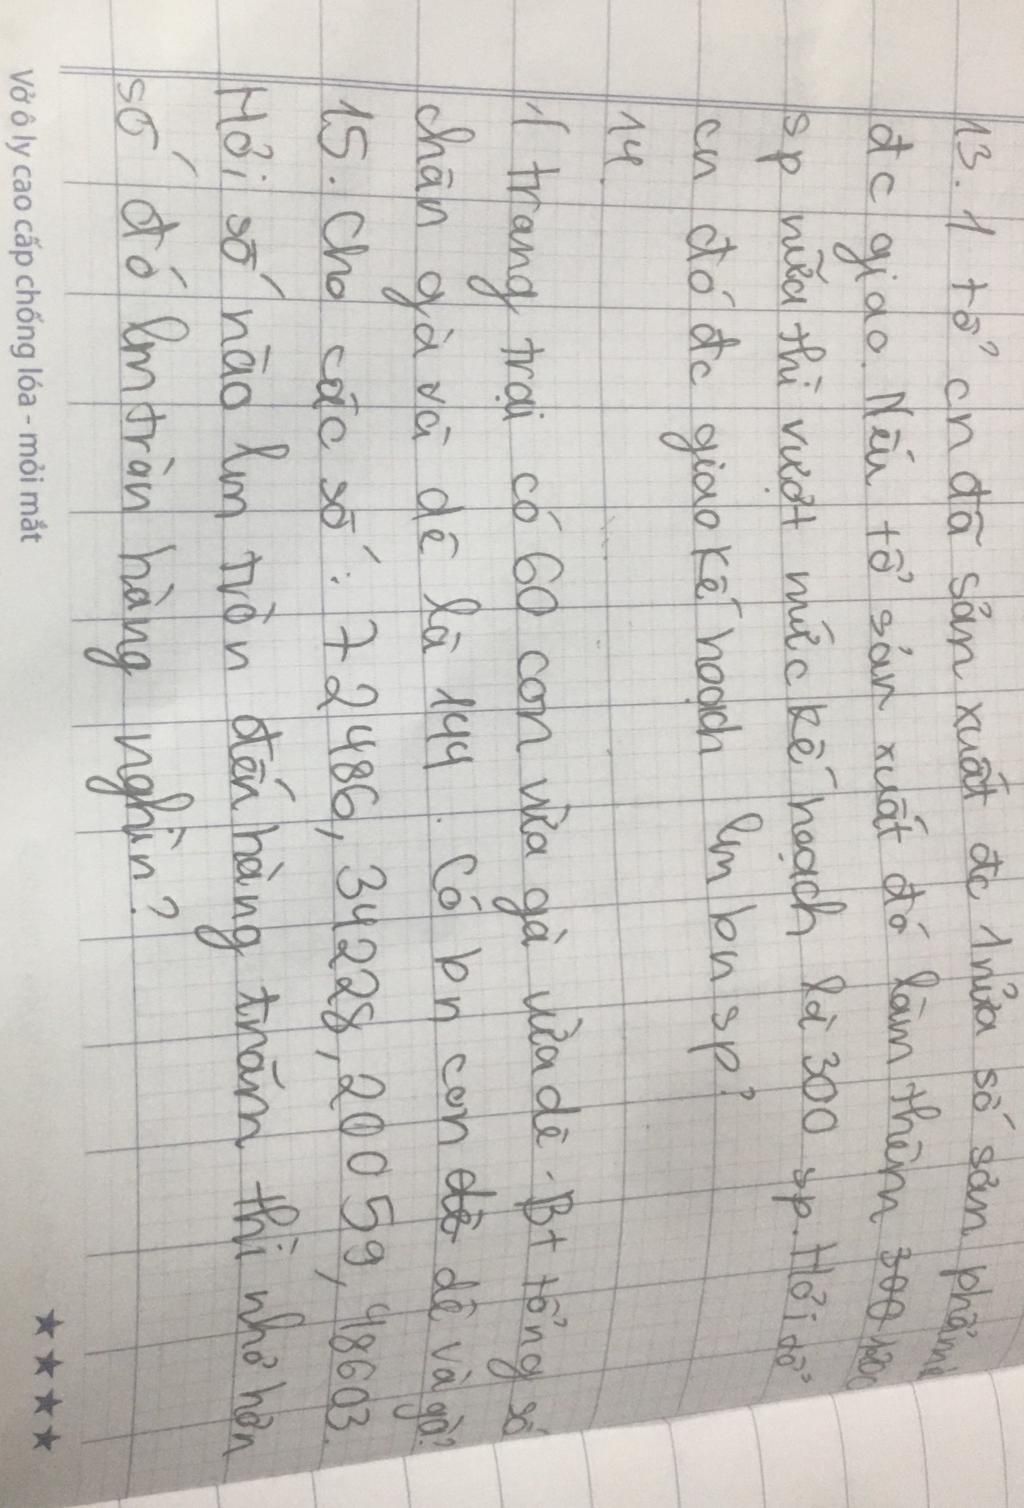 13. 1 tổ cn đã sản xuất đc 1 nửa số sản phẩm
đc giao. Nếu tổ sản xuất đó làm thêm
sp nữa thì vượt mức kế hoạch là 300 sp. Hỏi tổ
cn đó đc giao kế hoạch lm bn sp?
14.
1 trang trại có 60 con vừa gà vừa dê. Bt tổng số
chân gà và dê là 144. Có bn con dê và gà?
15. Cho các số: 72486, 34228, 20059, 48603.
Hỏi số nào lm tròn đến hàng trăm thì nhỏ hơn
số đó lm tròn hàng nghìn?
Vở ô ly cao cấp chống lóa - mỏi mắt